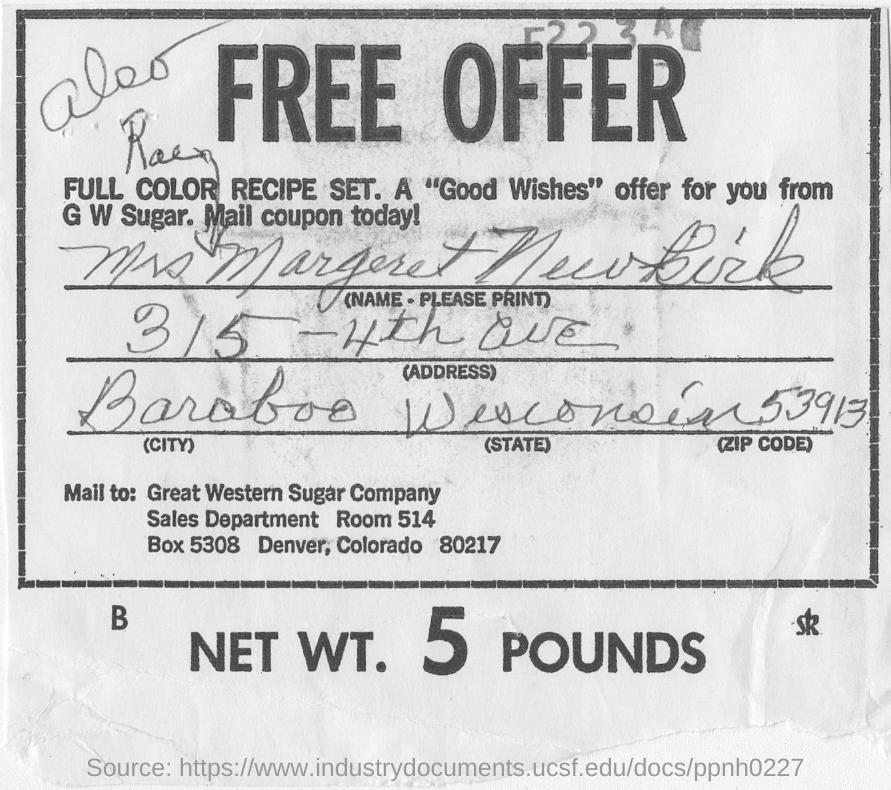 also
FREE OFFER
FULL COLOR RECIPE SET. A "Good Wishes" offer for you from
G W Sugar. Mail coupon today!
Mrs Margeret Newkirk
(NAME - PLEASE PRINT)
315 - 4th ave
(ADDRESS)
Baraboo Wisconsin 53913
(CITY) (STATE) (ZIP CODE)
Mail to: Great Western Sugar Company
Sales Department Room 514
Box 5308 Denver, Colorado 80217
B
NET WT. 5 POUNDS
Source: https://www.industrydocuments.ucsf.edu/docs/ppnh0227